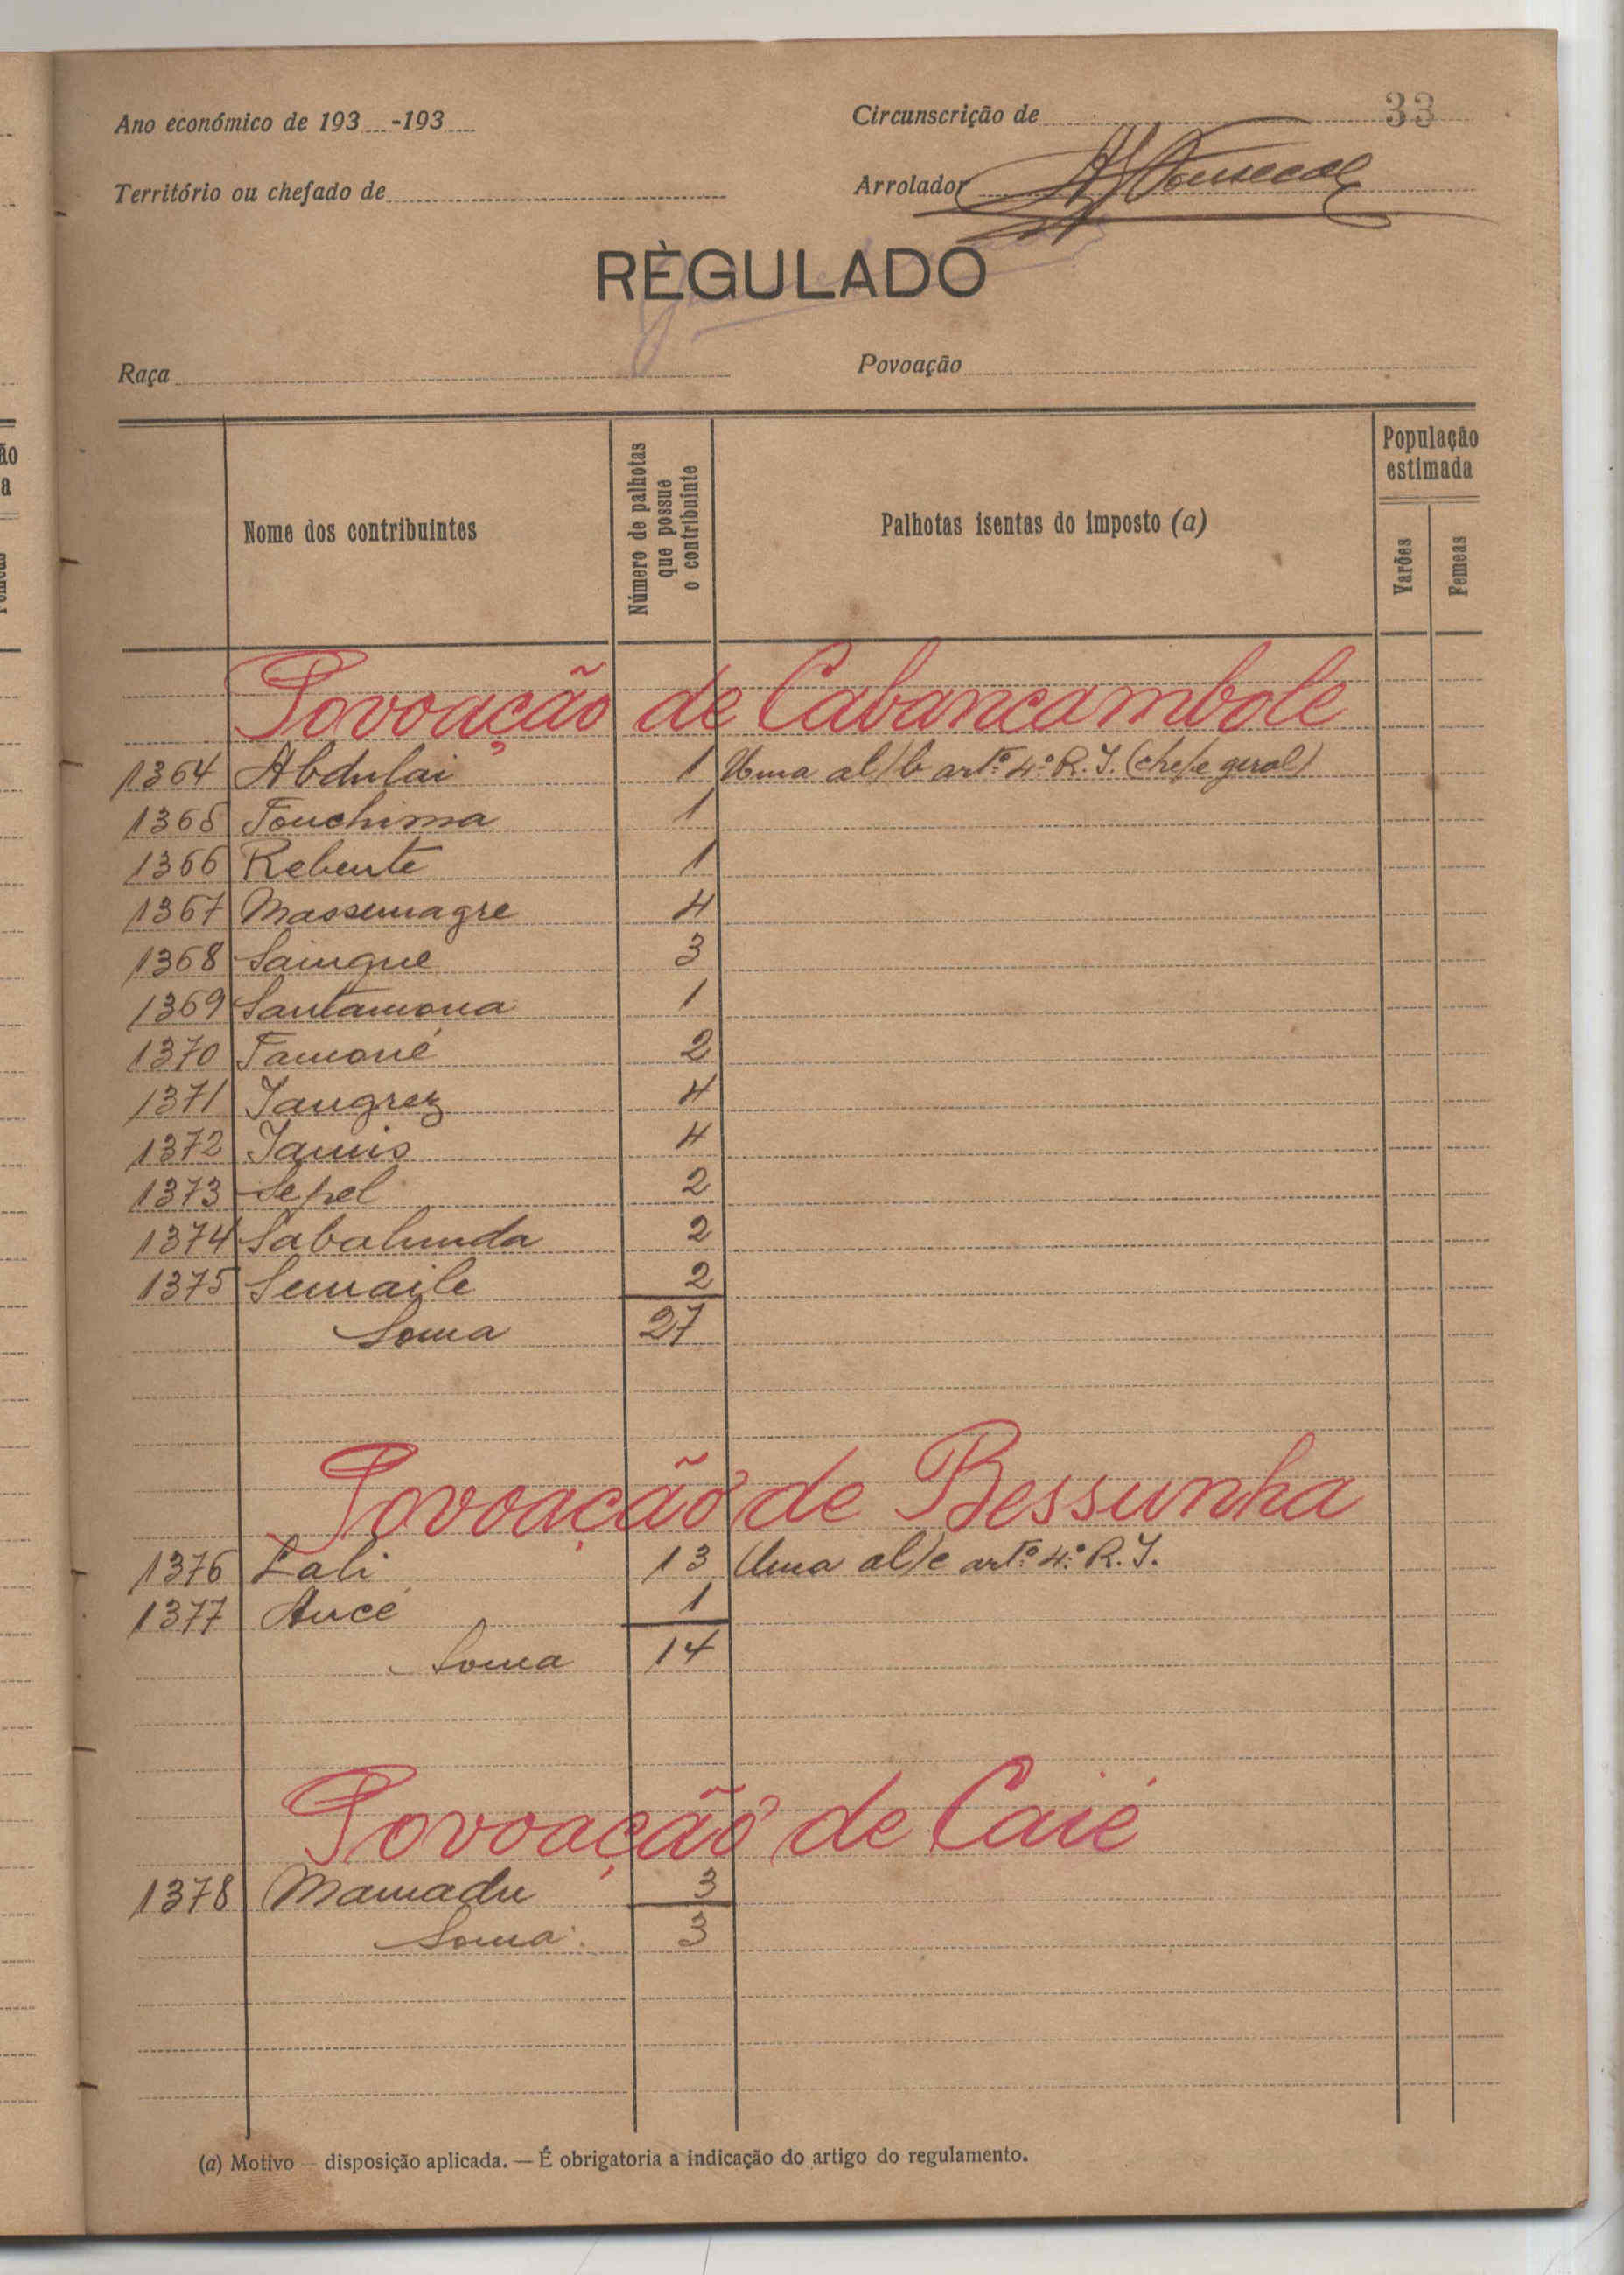 33
Ano económico de 193 -193
Circunscrição de
Território ou chefado de
Arrolador
RÈGULADO
Raça
Povoação
Nome dos contribuintes
Número de palhotas que possue o contribuinte
Palhotas isentas do imposto (a)
População estimada
Varões
Femeas
Povoação de Cabancambole
1364 Abdulai 1 Uma al/b artº 4º R. I. (chefe geral)
1365 Fouchima 1
1366 Rebente 1
1367 Massemagre 4
1368 Saingue 3
1369 Santamona 1
1370 Famoné 2
1371 Iangrez 4
1372 Iamis 4
1373 Sepel 2
1374 Sabalunda 2
1375 Semaile 2
Soma 27
Povoação de Bessunha
1376 Lali 13 Uma al/c artº 4º R. I.
1377 Aucé 1
Soma 14
Povoação de Caié
1378 Mamadu 3
Soma 3
(a) Motivo — disposição aplicada. — É obrigatoria a indicação do artigo do regulamento.